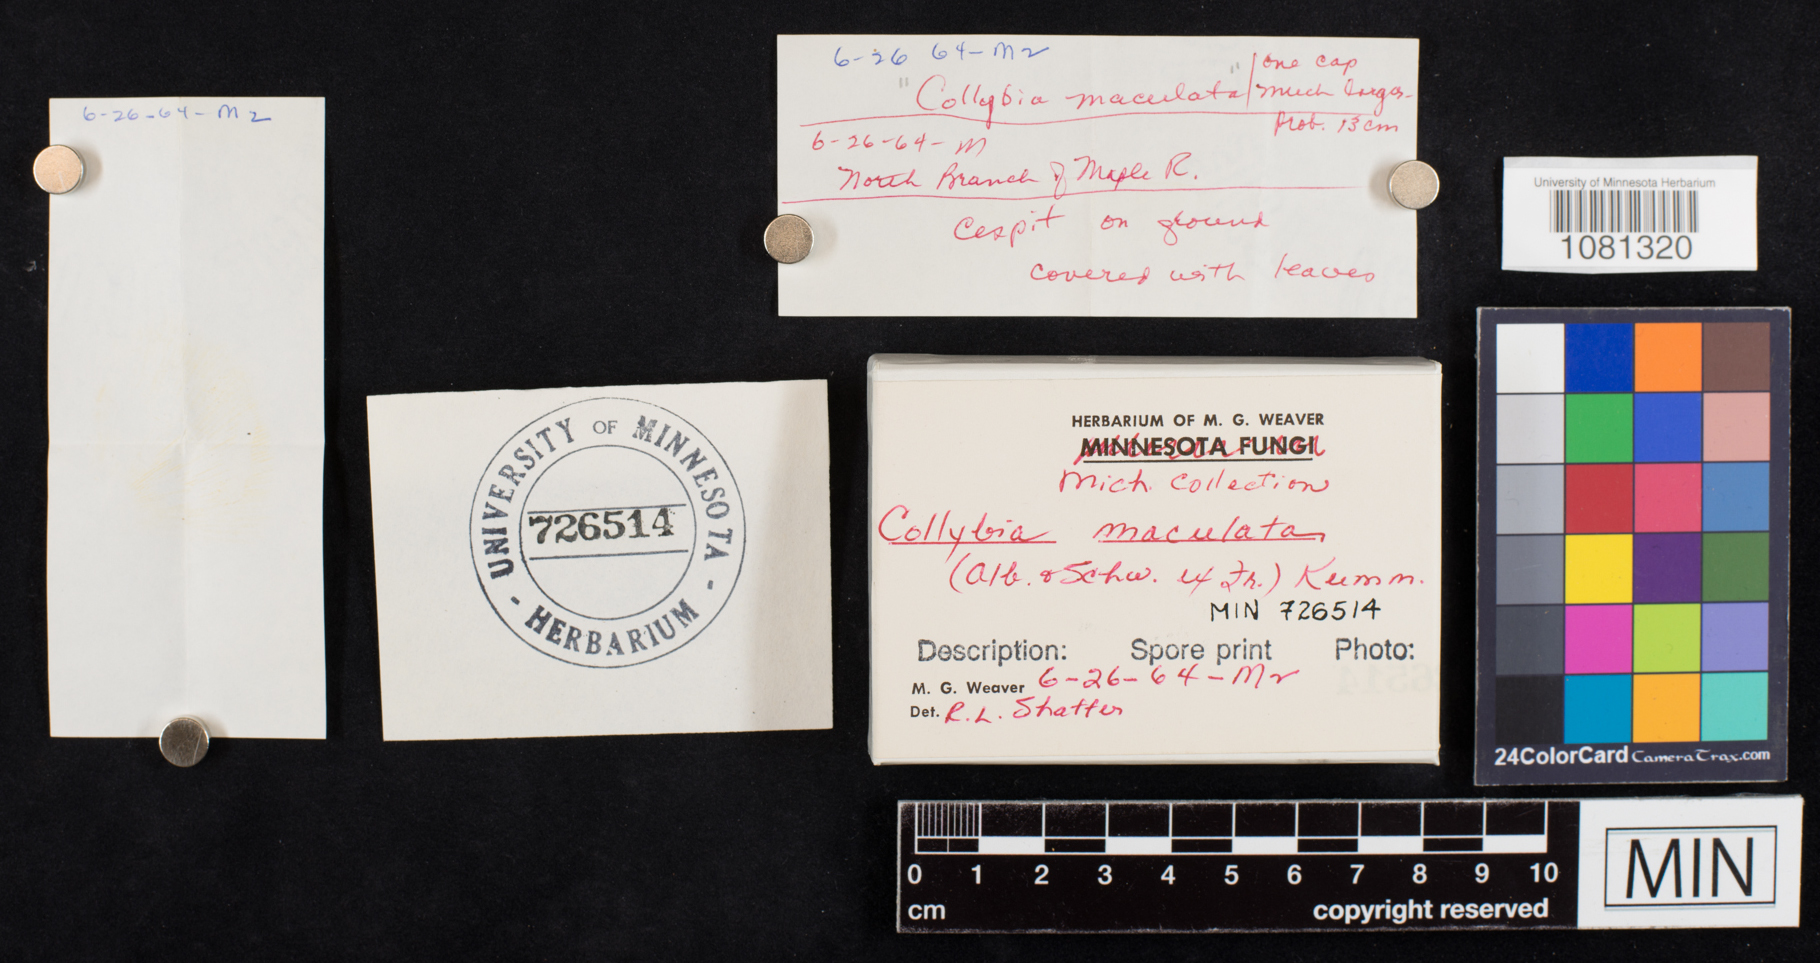 6-26-64-M2
6-26 64-M2
"Collybia maculata"
one cap
much larger
prob. 13 cm
6-26-64-M
North Branch of Maple R.
Cespit on ground
covered with leaves
University of Minnesota Herbarium
1081320
UNIVERSITY OF MINNESOTA
726514
- HERBARIUM -
HERBARIUM OF M. G. WEAVER
MINNESOTA FUNGI
Mich. Collection
Collybia maculata
(Alb. & Schw. ex Fr.) Kumm.
MIN 726514
Description: Spore print Photo:
M. G. Weaver 6-26-64-M2
Det. R. L. Shaffer
24ColorCard CameraTrax.com
0 1 2 3 4 5 6 7 8 9 10
cm copyright reserved
MIN